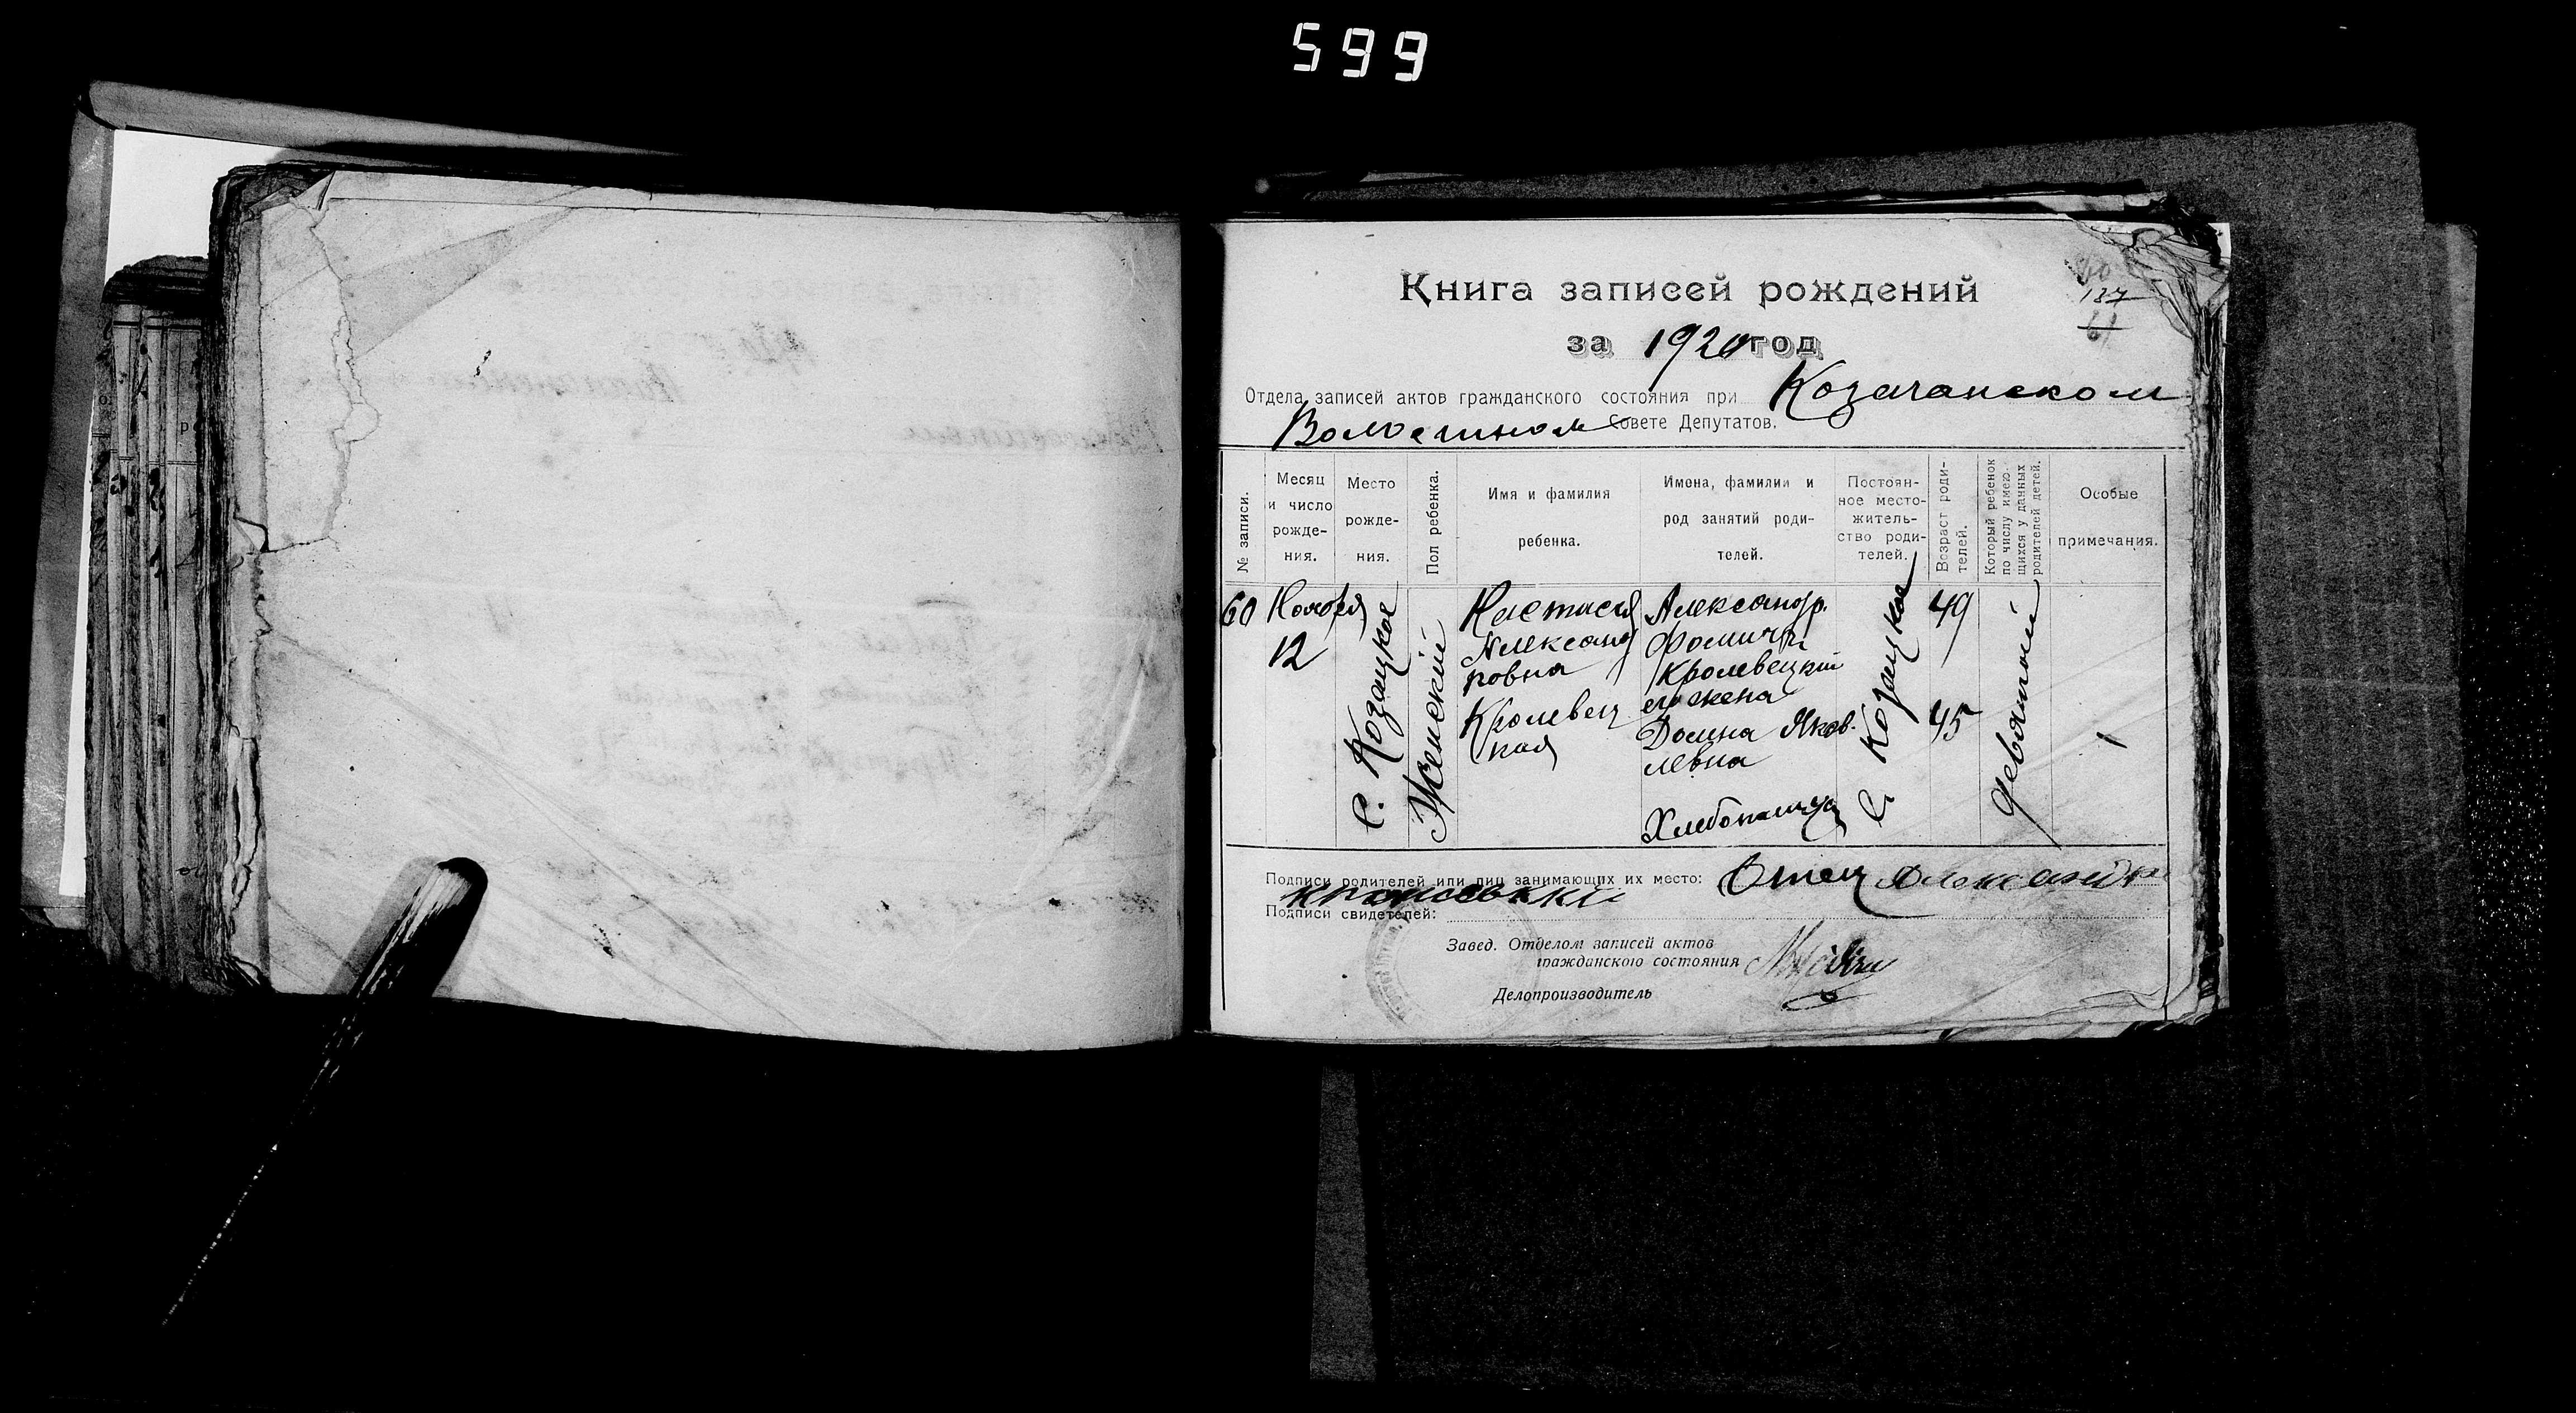 599
Книга записей рождений
60
187
61
за 1920 год
Отдела записей актов гражданского состояния при Козачанском
Волостном Совете Депутатов.
№ записи.
Месяц и число рожде- ния.
Место рожде- ния.
Пол ребенка.
Имя и фамилия ребенка.
Имена, фамилии и род занятий роди- телей.
Постоян- ное место- житель- ство роди- телей.
Возраст роди- телей.
Который ребенок по числу имею- щихся у данных родителей детей.
Особые примечания.
60
Ноября
12
с. Козацкое
Женский
Настасия
Александ
ровна
Кролевец
кая
Александр.
Фомичъ
Кролевецкий
его жена
Домна Яков.
левна
Хлебопашцы
с. Козацкое
49
45
девятый
Подписи родителей или лиц занимающих их место: Отец Александр
Подписи свидетелей:
Завед. Отделом записей актов
гражданского состояния
Делопроизводитель